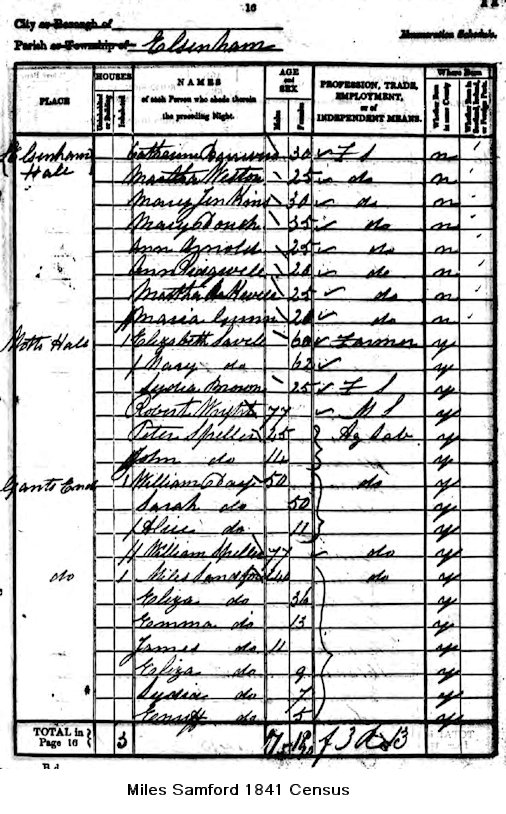 16
City or Borough of
Parish or Township of Elsenham Enumeration Schedule.
PLACE
HOUSES
Uninhabited or Building
Inhabited
NAMES
of each Person who abode therein the preceding Night.
AGE and SEX
Males
Females
PROFESSION, TRADE, EMPLOYMENT, or of INDEPENDENT MEANS.
Where Born
Whether Born in same County
Whether Born in Scotland, Ireland, or Foreign Parts.
Elsenham Catherine 30 F S n
Hall Martha Weston 25 do n
Mary Jenkins 30 do n
Mary 35 do n
Ann Arnold 25 do n
Ann Ridgwell 20 do n
Martha 25 do n
Maria Gunn 20 do n
Hall 1 Elizabeth Savell 60 Farmer y
Mary do 62 y
Lydia Brown 25 F S y
Robert Wright 77 M S y
Peter Speller 45 Ag Lab y
John do 14 y
Gants End 1 William Day 50 do y
Sarah do 50 y
Alice do 11 y
William Speller 77 do y
do 1 Miles Sandford 40 do y
Eliza do 36 y
Emma do 13 y
James do 11 y
Eliza do 9 y
Lydia do 7 y
do 5 y
TOTAL in Page 16 3 7 18
B d
Miles Samford 1841 Census